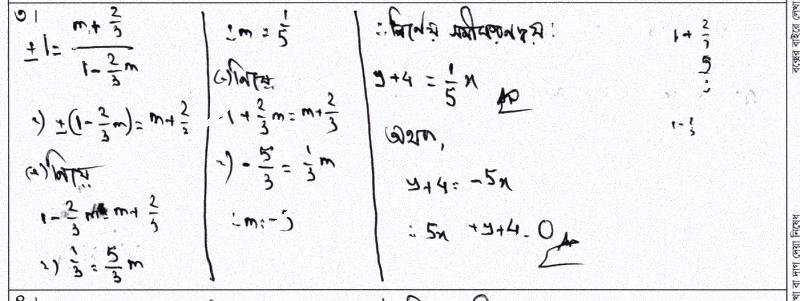 ৩।
±1 = (m + 2/3) / (1 - 2/3 m)
২) ±(1 - 2/3 m) = m + 2/3
(+) নিয়ে
1 - 2/3 m = m + 2/3
২) 1/3 = 5/3 m
∴ m = 1/5
(-) নিয়ে
-1 + 2/3 m = m + 2/3
২) - 5/3 = 1/3 m
∴ m = -5
∴ নির্ণেয় সমীকরণদ্বয়:
y + 4 = 1/5 x
অথবা,
y + 4 = -5x
∴ 5x + y + 4 = 0
1 + 2/3
5
1 - 2/3
বক্সের বাইরে লেখা
বা দাগ দেয়া নিষেধ